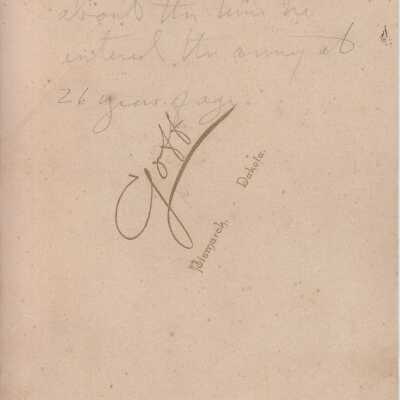 about the time he
entered the army at
26 years of age.
Goff
Bismarck. Dakota.